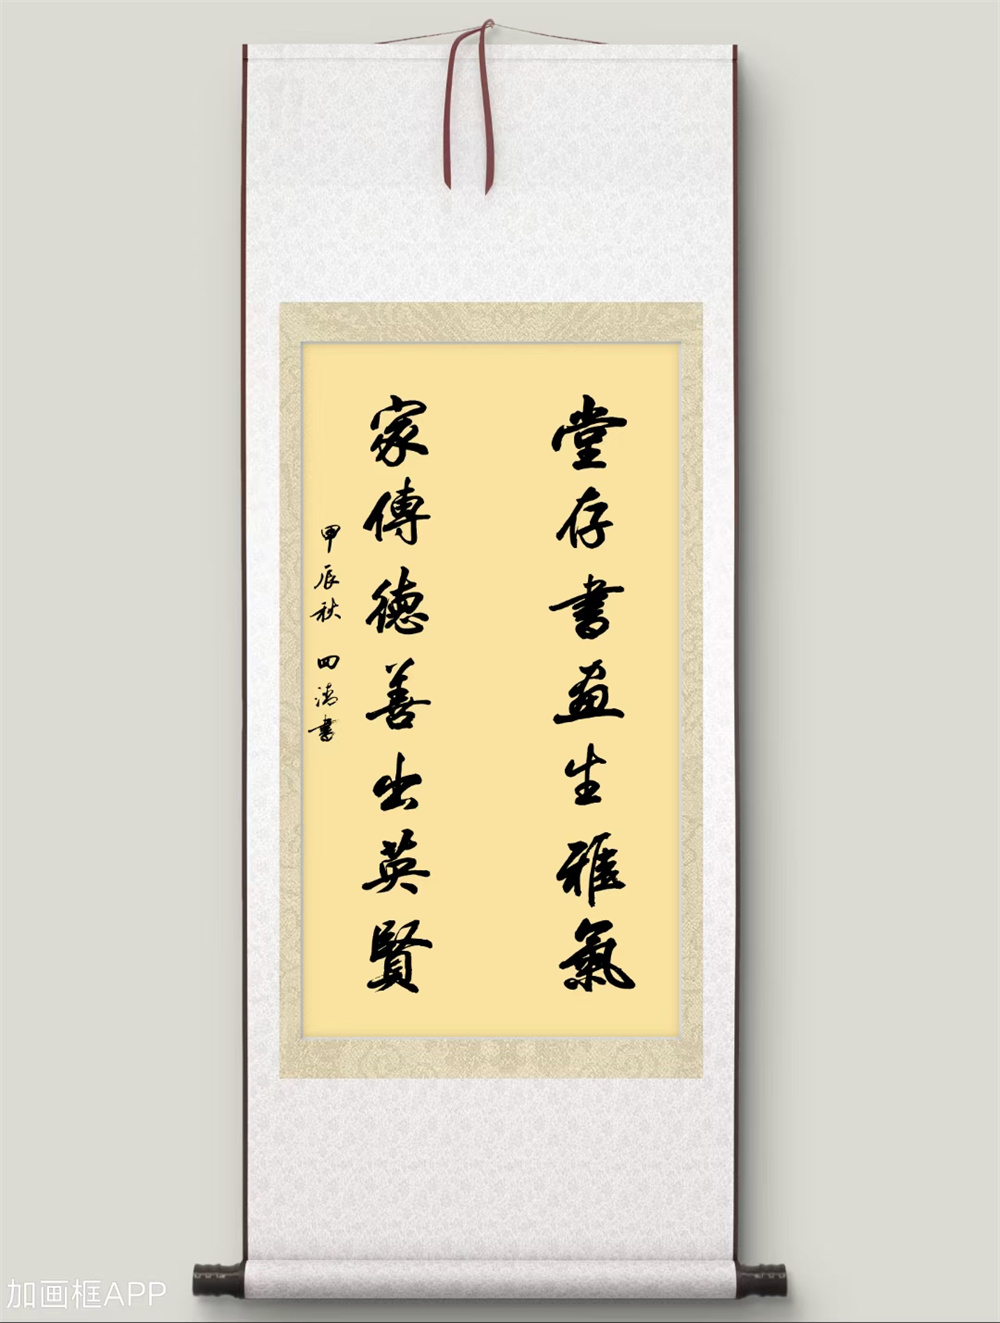 堂存書画生雅氣
家傳德善出英賢
甲辰秋 四清書
加画框APP